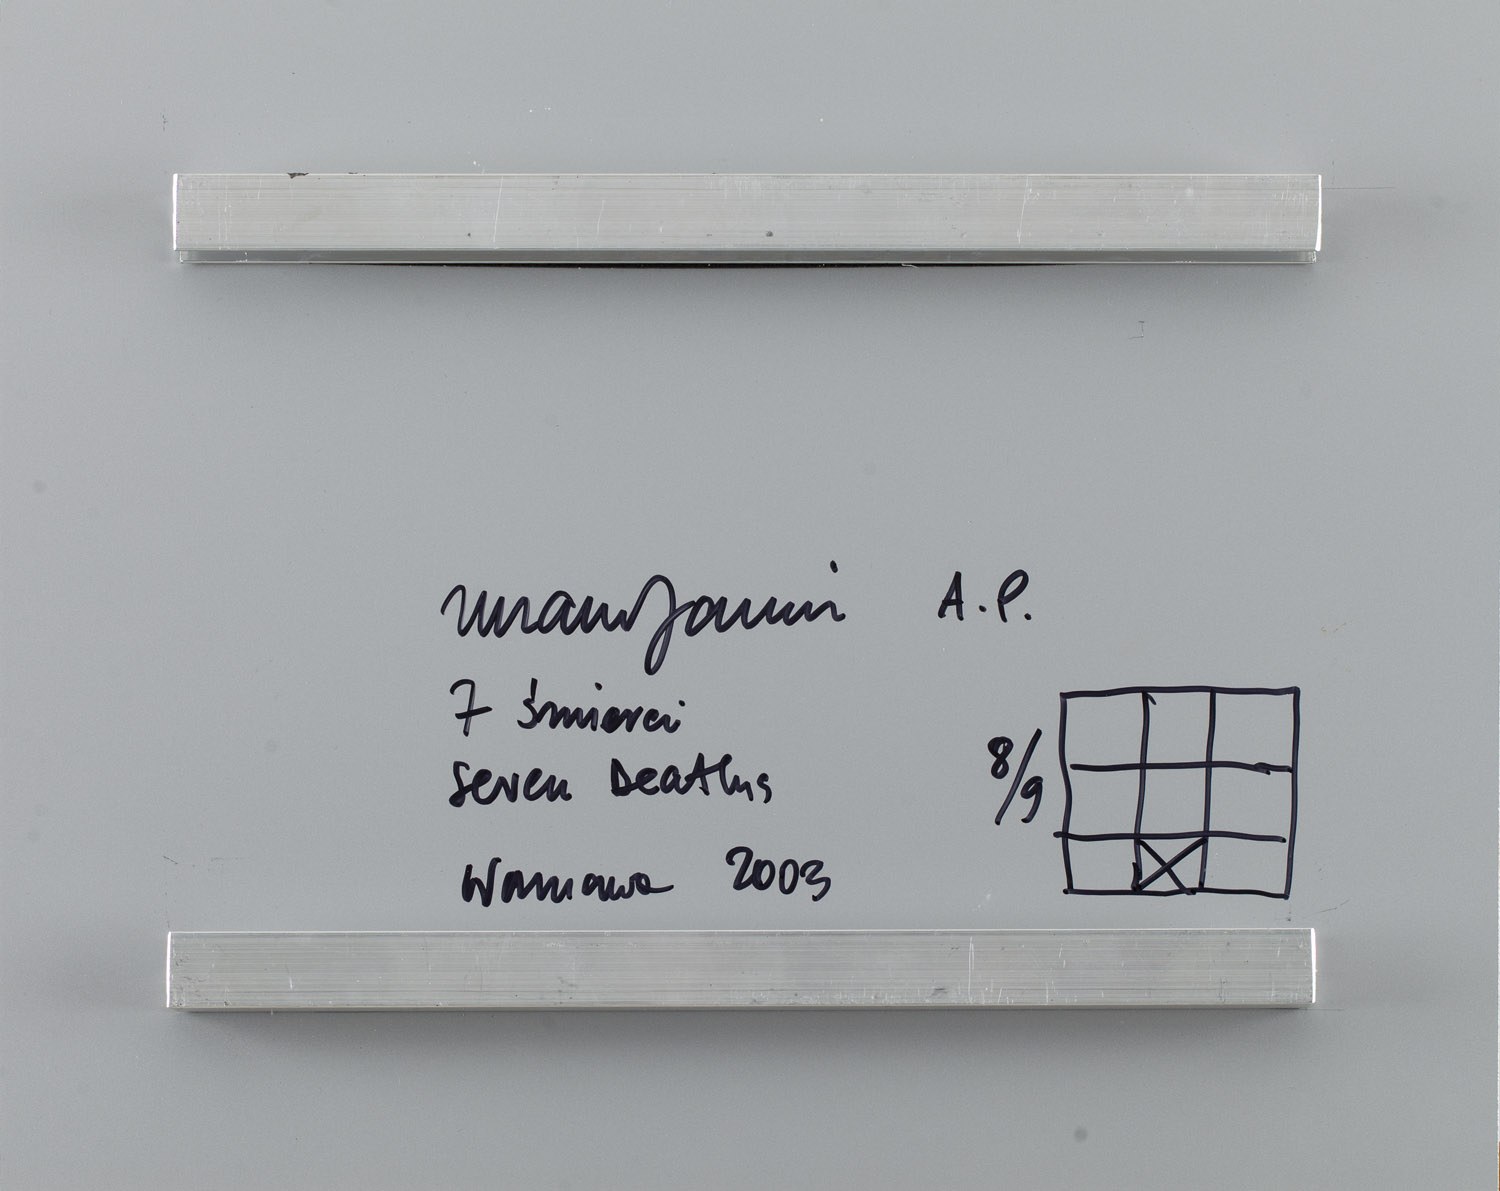 A.P.
7 śmierci
seven Deaths
8/9
Warszawa 2003